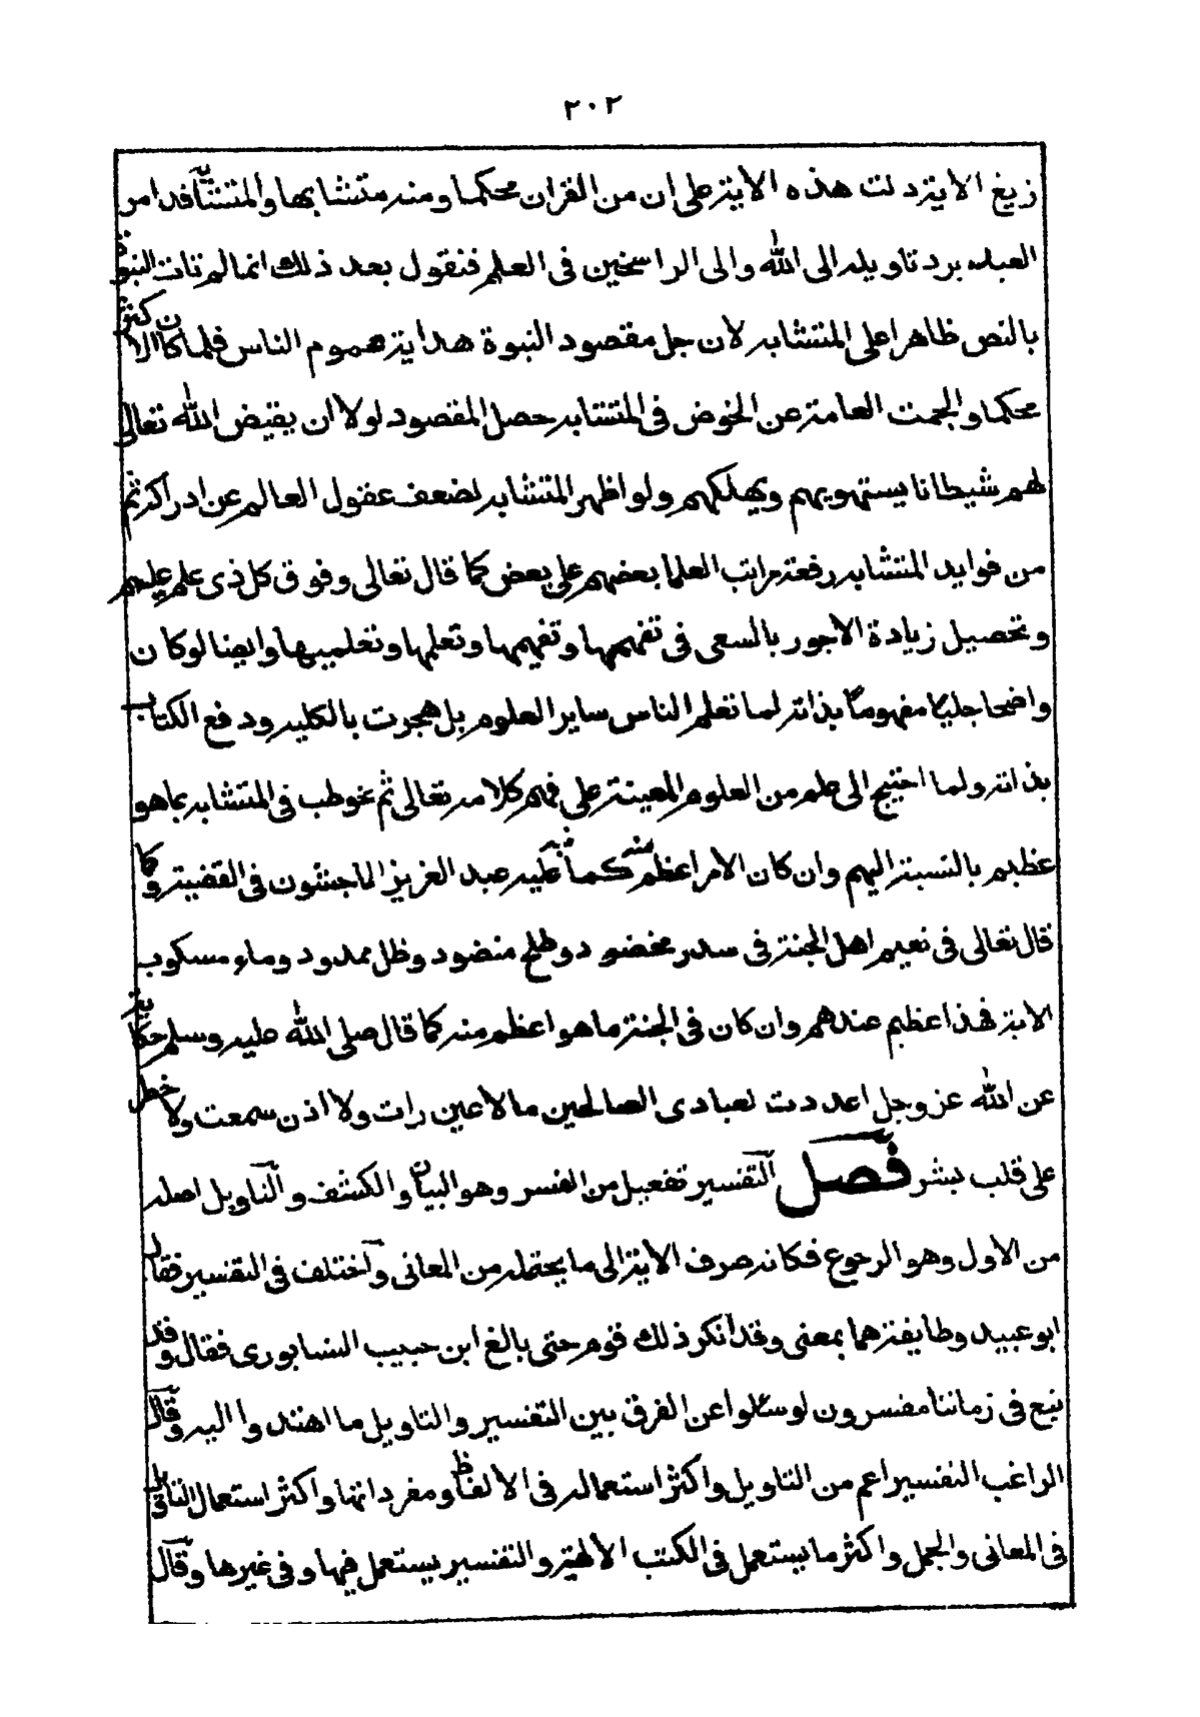 ٢٠٢
زيغ الاية دلت هذه الاية على ان من القران محكما ومنه متشابها والمتشابه قد امر
العباد برد تاويله الى الله والى الراسخين فى العلم فنقول بعد ذلك انما لم تات النبوة
بالنص ظاهرا على المتشابه لان جل مقصود النبوة هداية عموم الناس فلما كان الاكثر
محكما والجمت العامة عن الخوض فى المتشابه حصل المقصود لولا ان يقيض الله تعالى
لهم شيطانا يستهويهم ويهلكهم ولو اظهر المتشابه لضعفت عقول العالم عن ادراكه ثم
من فوايد المتشابه رفعة مراتب العلما بعضهم على بعض كما قال تعالى وفوق كل ذى علم عليم
وتحصيل زيادة الاجور بالسعى فى تفهمها وتفهيمها وتعلمها وتعليمها وايضا لو كان
واضحا جليا مفهوما بذاته لما تعلم الناس ساير العلوم بل هجرت بالكلية ودفع الكتاب
بذاته ولما احتيج الى علم من العلوم المعينة على فهم كلامه تعالى ثم خوطب فى المتشابه بما هو
عظيم بالنسبة اليهم وان كان الامر اعظم منه كما نبه عليه عبد العزيز الماجشون فى القضية وكما
قال تعالى فى نعيم اهل الجنة فى سدر مخضود وطلح منضود وظل ممدود وماء مسكوب
الاية فهذا عظيم عندهم وان كان فى الجنة ما هو اعظم منه كما قال صلى الله عليه وسلم حكاية
عن الله عز وجل اعددت لعبادى الصالحين ما لا عين رات ولا اذن سمعت ولا خطر
على قلب بشر فصل التفسير تفعيل من الفسر وهو البيان والكشف والتاويل اصله
من الاول وهو الرجوع فكانه صرف الاية الى ما يحتمله من المعانى واختلف فى التفسير فقال
ابو عبيد وطايفة هما بمعنى وقد انكر ذلك قوم حتى بالغ ابن حبيب النسابورى فقال وقد
نبغ فى زماننا مفسرون لو سئلوا عن الفرق بين التفسير والتاويل ما اهتدوا اليه وقال
الراغب التفسير اعم من التاويل واكثر استعماله فى الالفاظ ومفرداتها واكثر استعمال التاويل
فى المعانى والجمل واكثر ما يستعمل فى الكتب الالهية والتفسير يستعمل فيها وفى غيرها وقال